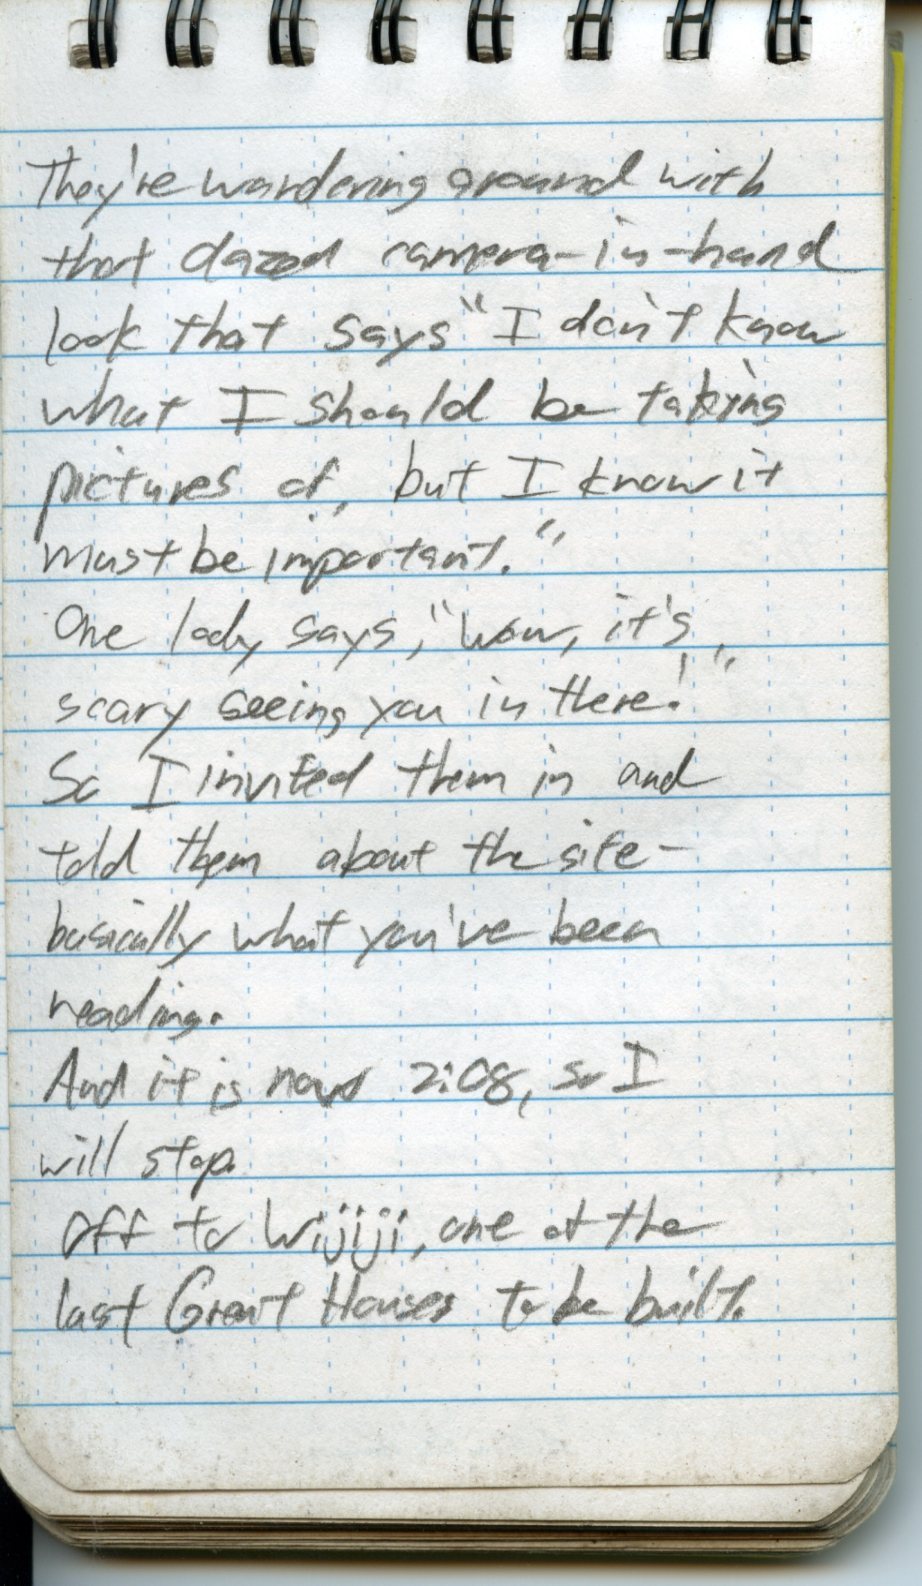 They're wandering around with
that dazed camera-in-hand
look that says "I don't know
what I should be taking
pictures of, but I know it
must be important."
One lady says, "Wow, it's
scary seeing you in there!"
So I invited them in and
told them about the site-
basically what you've been
reading.
And it is now 2:08, so I
will stop.
Off to Wijiji, one of the
last Great Houses to be built.